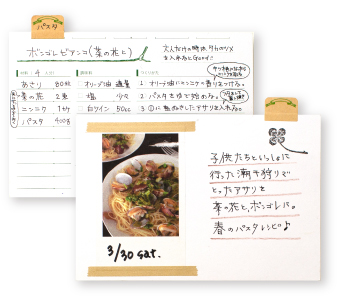 パスタ
ボンゴレビアンコ(菜の花と)
大人だけの時は、タカのツメ
を入れるとGood!
材料 4人分
あさり 80粒
菜の花 2束
ニンニク 1ケ
パスタ 400g
オリーブ油 適量
塩 少々
白ワイン 50cc
1 オリーブ油にニンニクの香りをつける。
2 パスタをゆで始める。
3 ①に塩ぬきしたアサリを入れる。
3/30 sat.
子供たちといっしょに
行った潮干狩りで
とったアサリを
菜の花と、ボンゴレに。
春のパスタレシピ♪